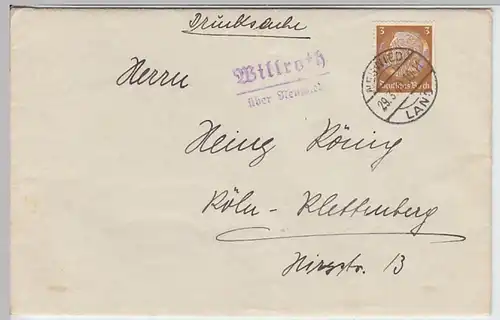 Drucksache
3 3
Deutsches Reich
NEUWIED
29.3
LAND
Willroth
über Neuwied
Herrn
Heinz König
Köln - Klettenberg
13